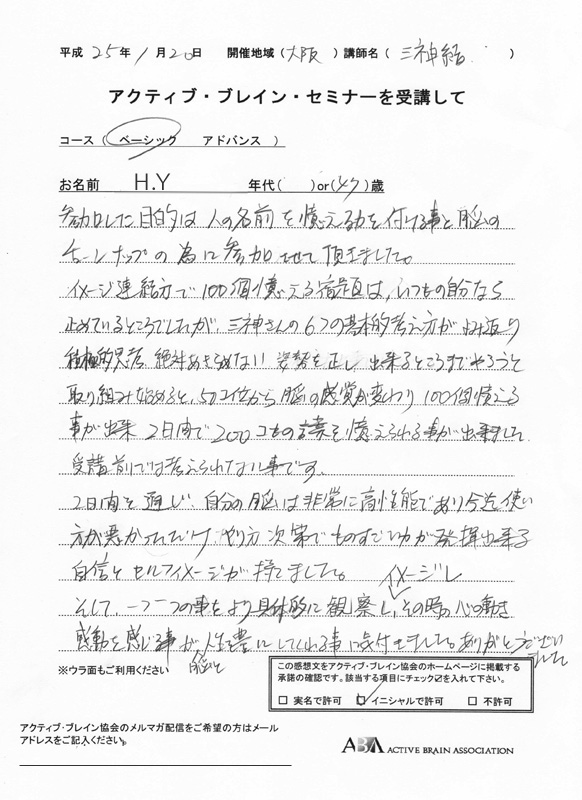 平成 25年 1月 20日 開催地域（大阪）講師名（三神結）
アクティブ・ブレイン・セミナーを受講して
コース（ ベーシック アドバンス ）
お名前 H.Y 年代( )or(47)歳
参加した目的は 人の名前を憶える力を付ける事と脳の
チューンナップの為に参加させて頂きました。
イメージ連結方で100個憶える宿題は、いつもの自分なら
止めているところでしたが、三神さんの6つの基本的考え方がよみ返り
積極的思考、絶対あきらめない 姿勢を正し 出来るところまでやろうと
取り組みはじめると、50コ位から脳の感覚が変わり 100個憶える
事が出来 2日間で200コもの言葉を憶えられる事が出来ました
受講前では考えられない事です。
2日間を通じ、自分の脳は非常に高性能であり今迄使い
方が悪かっただけ、やり方次第でものすごい力が発揮出来る
自信とセルフイメージが持てました。 イメージし
そして、一つ一つの事をより具体的に観察し、その時の心の動き
感動を感じる事が人生を豊にしてくれる事に気付きました。ありがとうござい
ました
脳と
※ウラ面もご利用ください
この感想文をアクティブ・ブレイン協会のホームページに掲載する
承諾の確認です。該当する項目にチェック☑を入れて下さい。
□ 実名で許可 ☑ イニシャルで許可 □ 不許可
アクティブ・ブレイン協会のメルマガ配信をご希望の方はメール
アドレスをご記入ください。
ABA ACTIVE BRAIN ASSOCIATION